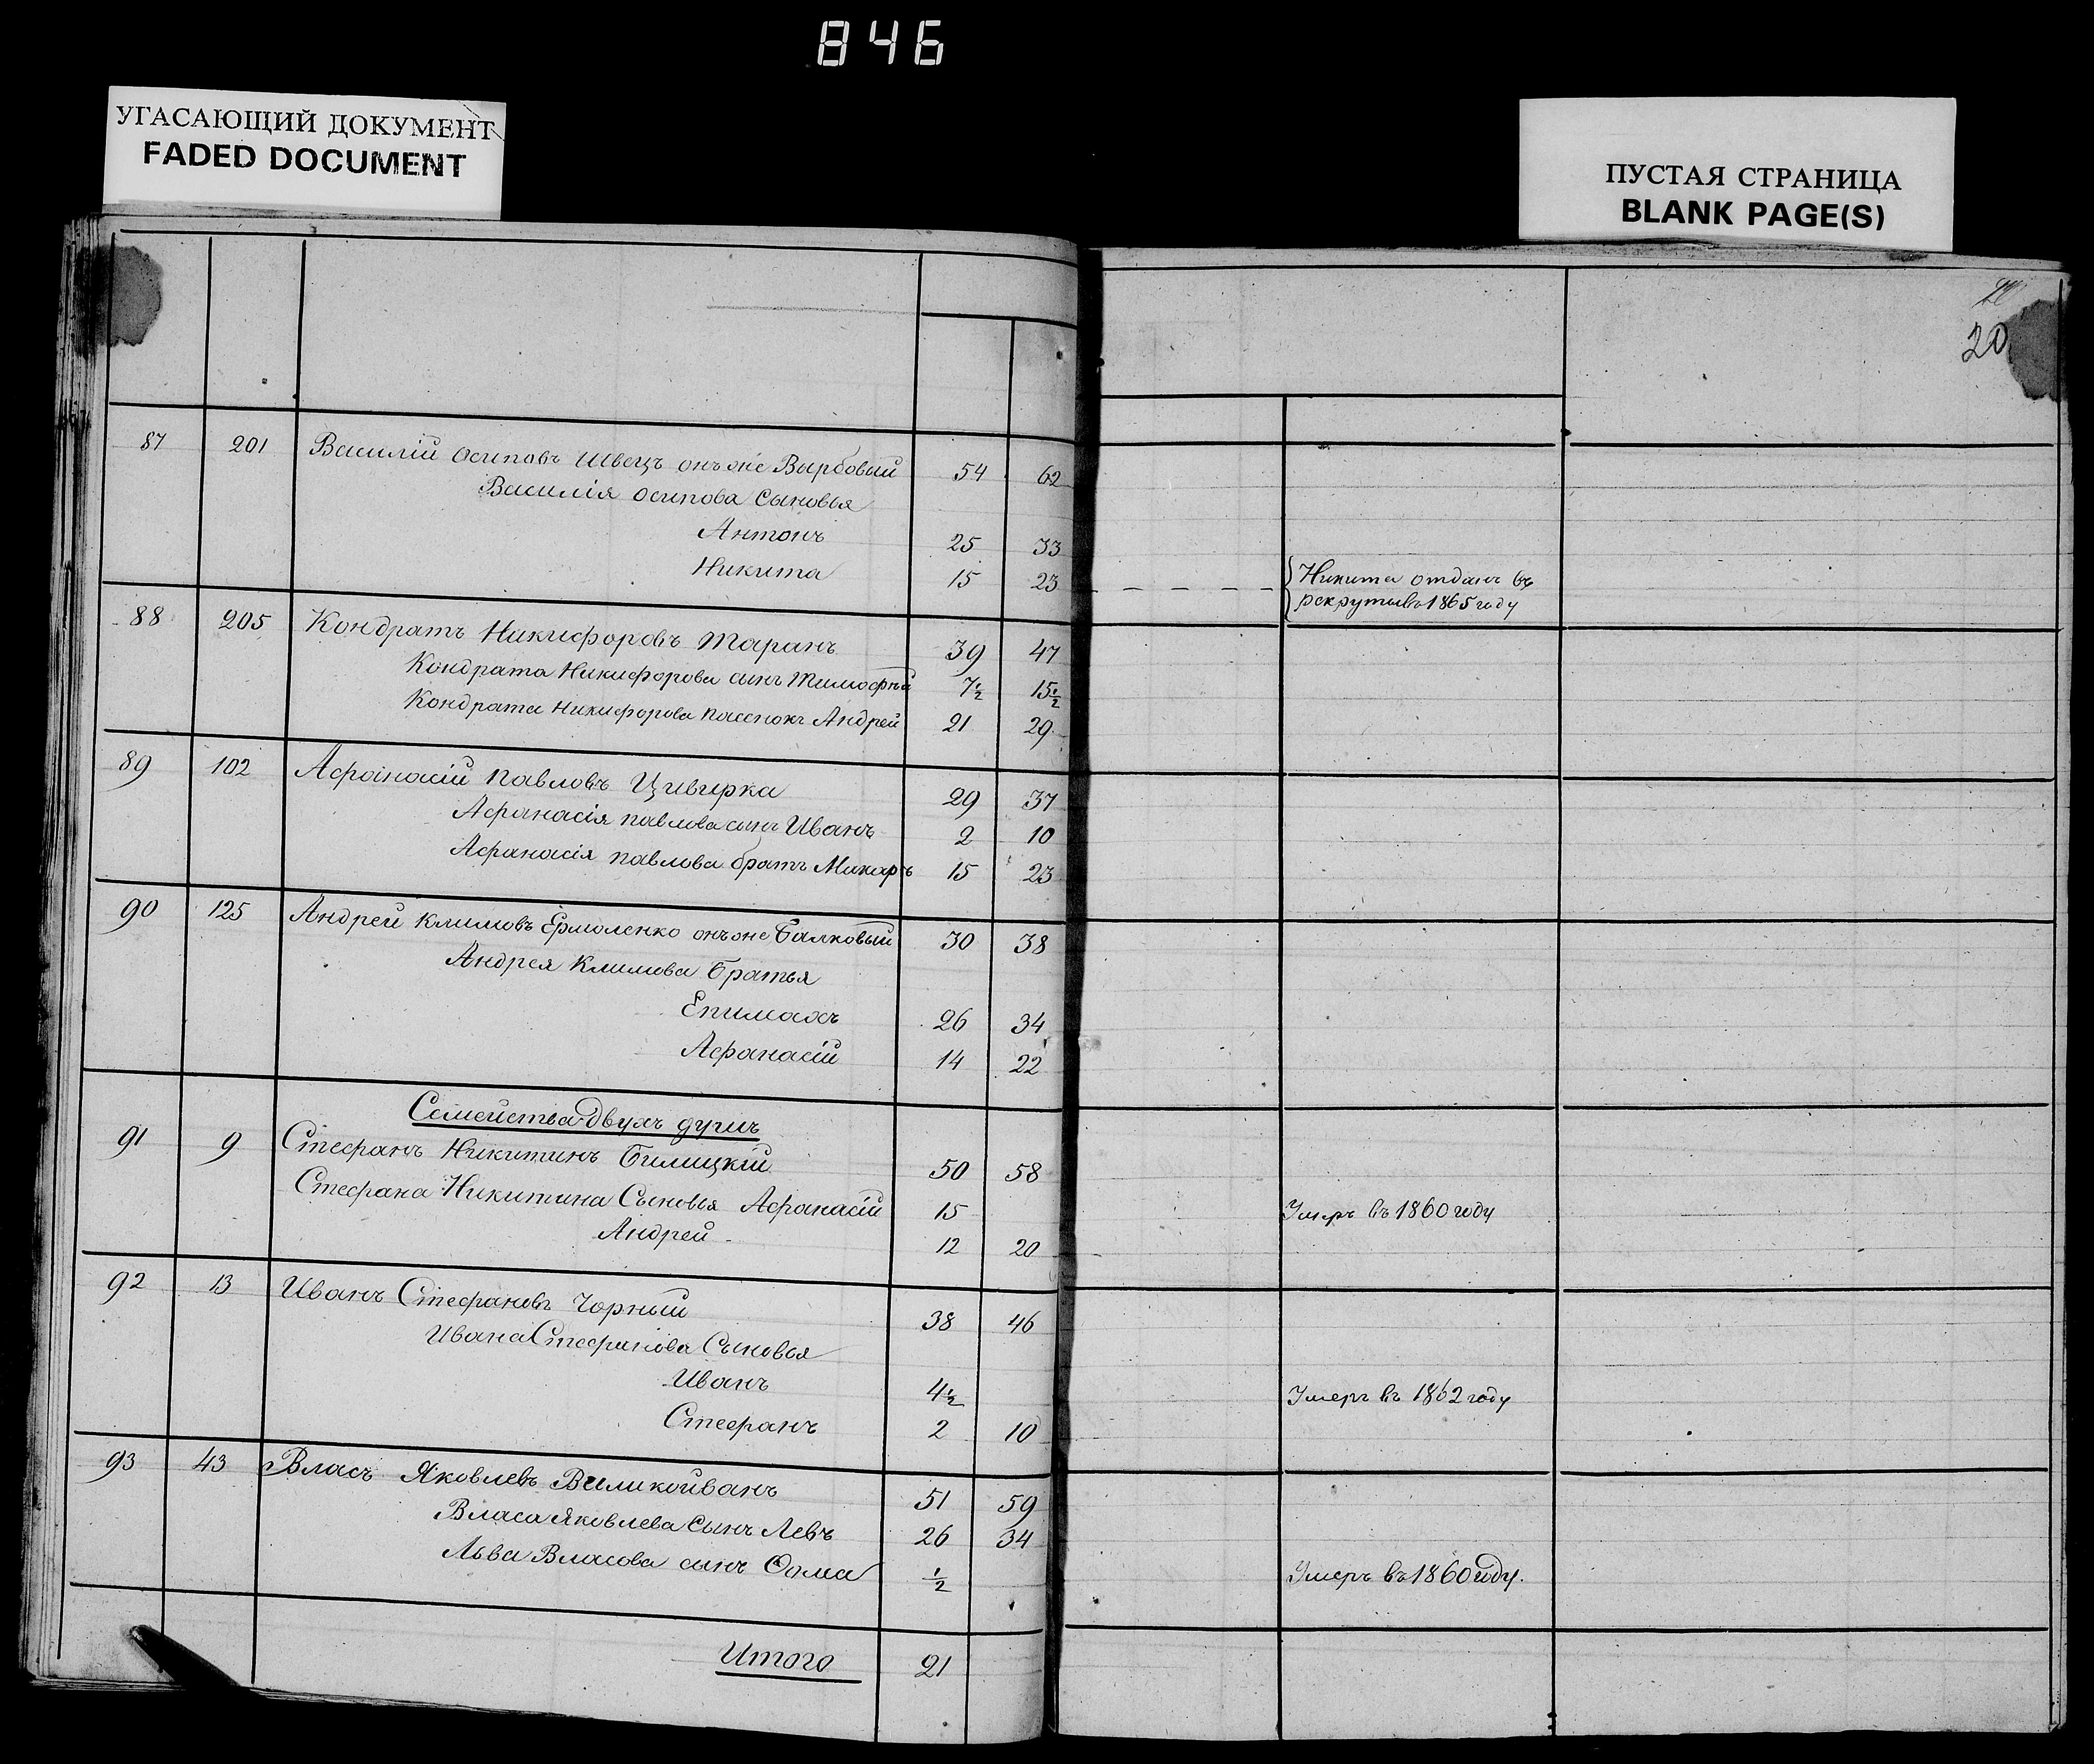 846
УГАСАЮЩИЙ ДОКУМЕНТ
FADED DOCUMENT
ПУСТАЯ СТРАНИЦА
BLANK PAGE(S)
20
87 201 Василій Осиповъ Швецъ онъ же Вырбовый 54 62
Василія Осипова Сыновья
Антонъ 25 33
Никита 15 23 Никита отданъ въ
рекруты въ 1865 году
88 205 Кондратъ Никифоровъ Таранъ 39 47
Кондрата Никифорова сынъ Тимофѣй 7½ 15½
Кондрата Никифорова пасенокъ Андрей 21 29
89 102 Афанасій Павловъ Цивирка 29 37
Афанасія Павлова сынъ Иванъ 2 10
Афанасія Павлова братъ Макаръ 15 23
90 125 Андрей Климовъ Ермоленко онъ же Балковый 30 38
Андрея Климова Братья
Епимахъ 26 34
Афанасій 14 22
Семейства двухъ душъ
91 9 Стефанъ Никитинъ Билицкій 50 58
Стефана Никитина Сыновья Афанасій 15 Умеръ въ 1860 году
Андрей 12 20
92 13 Иванъ Стефановъ Чорный 38 46
Ивана Стефанова Сыновья
Иванъ 4½ Умеръ въ 1862 году
Стефанъ 2 10
93 43 Власъ Яковлевъ Великойванъ 51 59
Власа Яковлева Сынъ Левъ 26 34
Льва Власова сынъ Ѳома ½ Умеръ въ 1860 году.
Итого 21